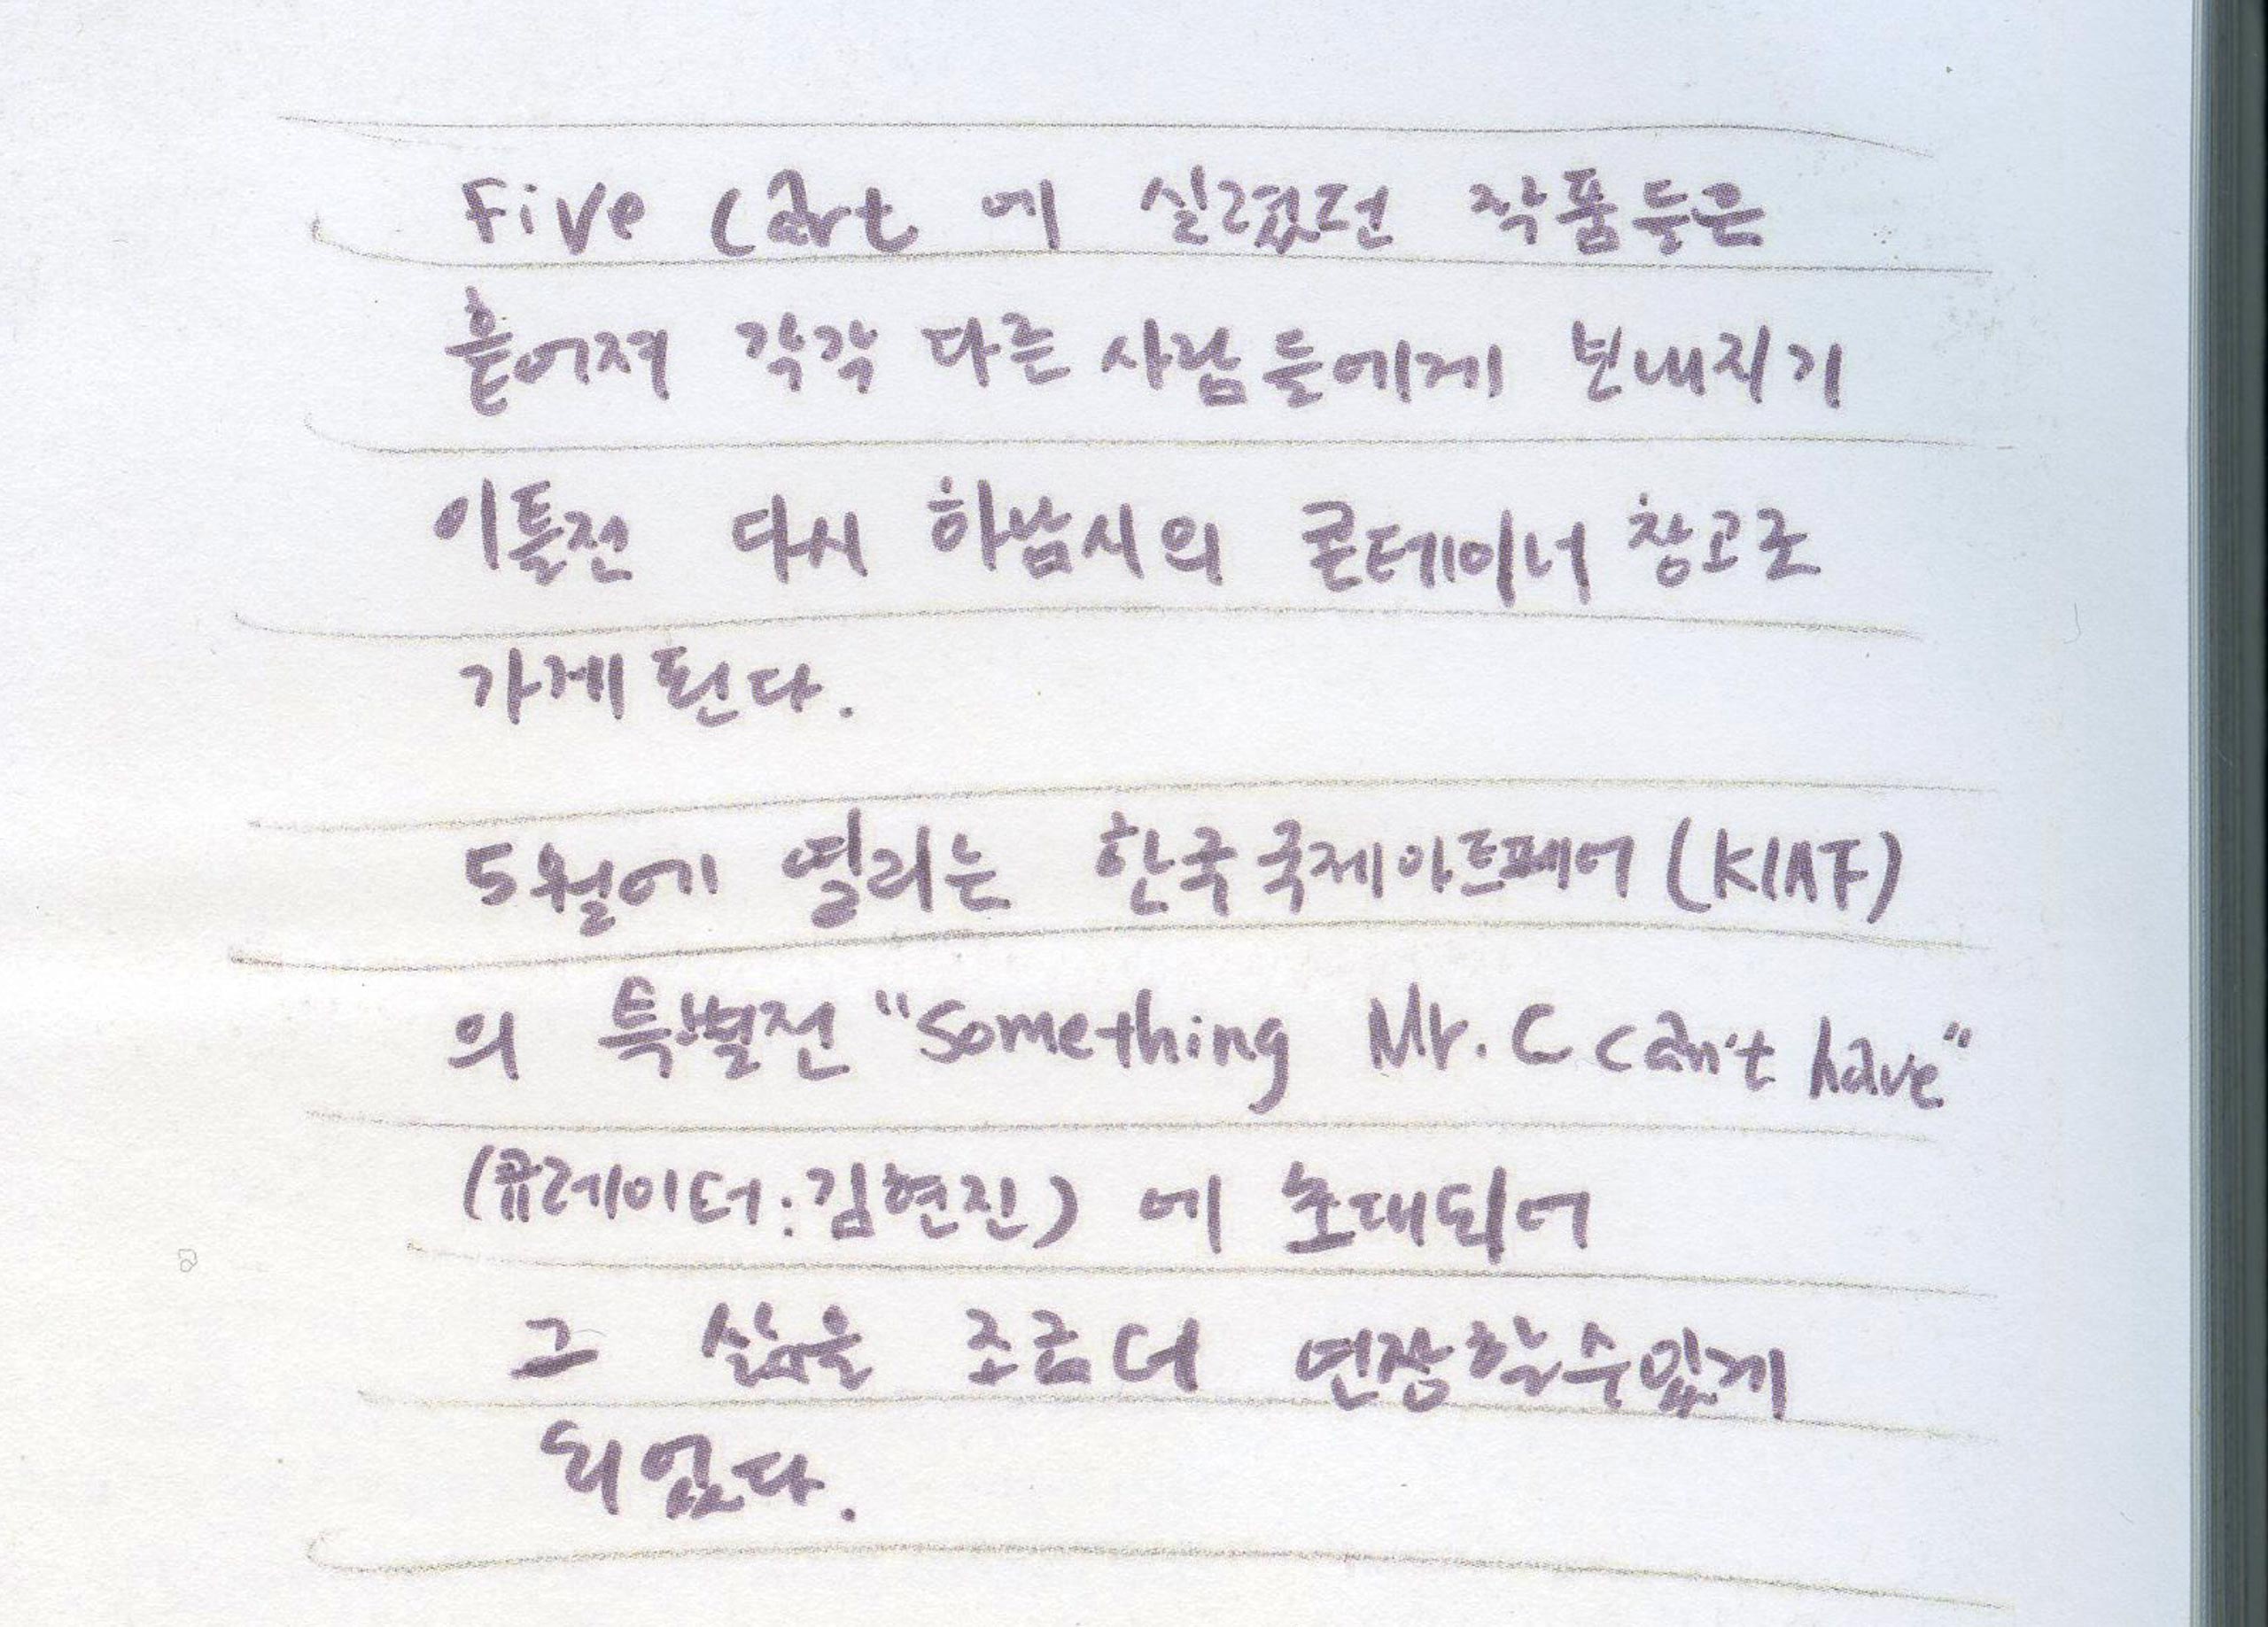 Five Cart 에 실렸던 작품들은
흩어져 각각 다른 사람들에게 보내지기
이틀전 다시 하남시의 콘테이너 창고로
가게 된다.
5월에 열리는 한국국제아트페어 (KIAF)
의 특별전 "Something Mr. C can't have"
(큐레이터:김현진) 에 초대되어
그 삶을 조금 더 연장할수있게
되었다.